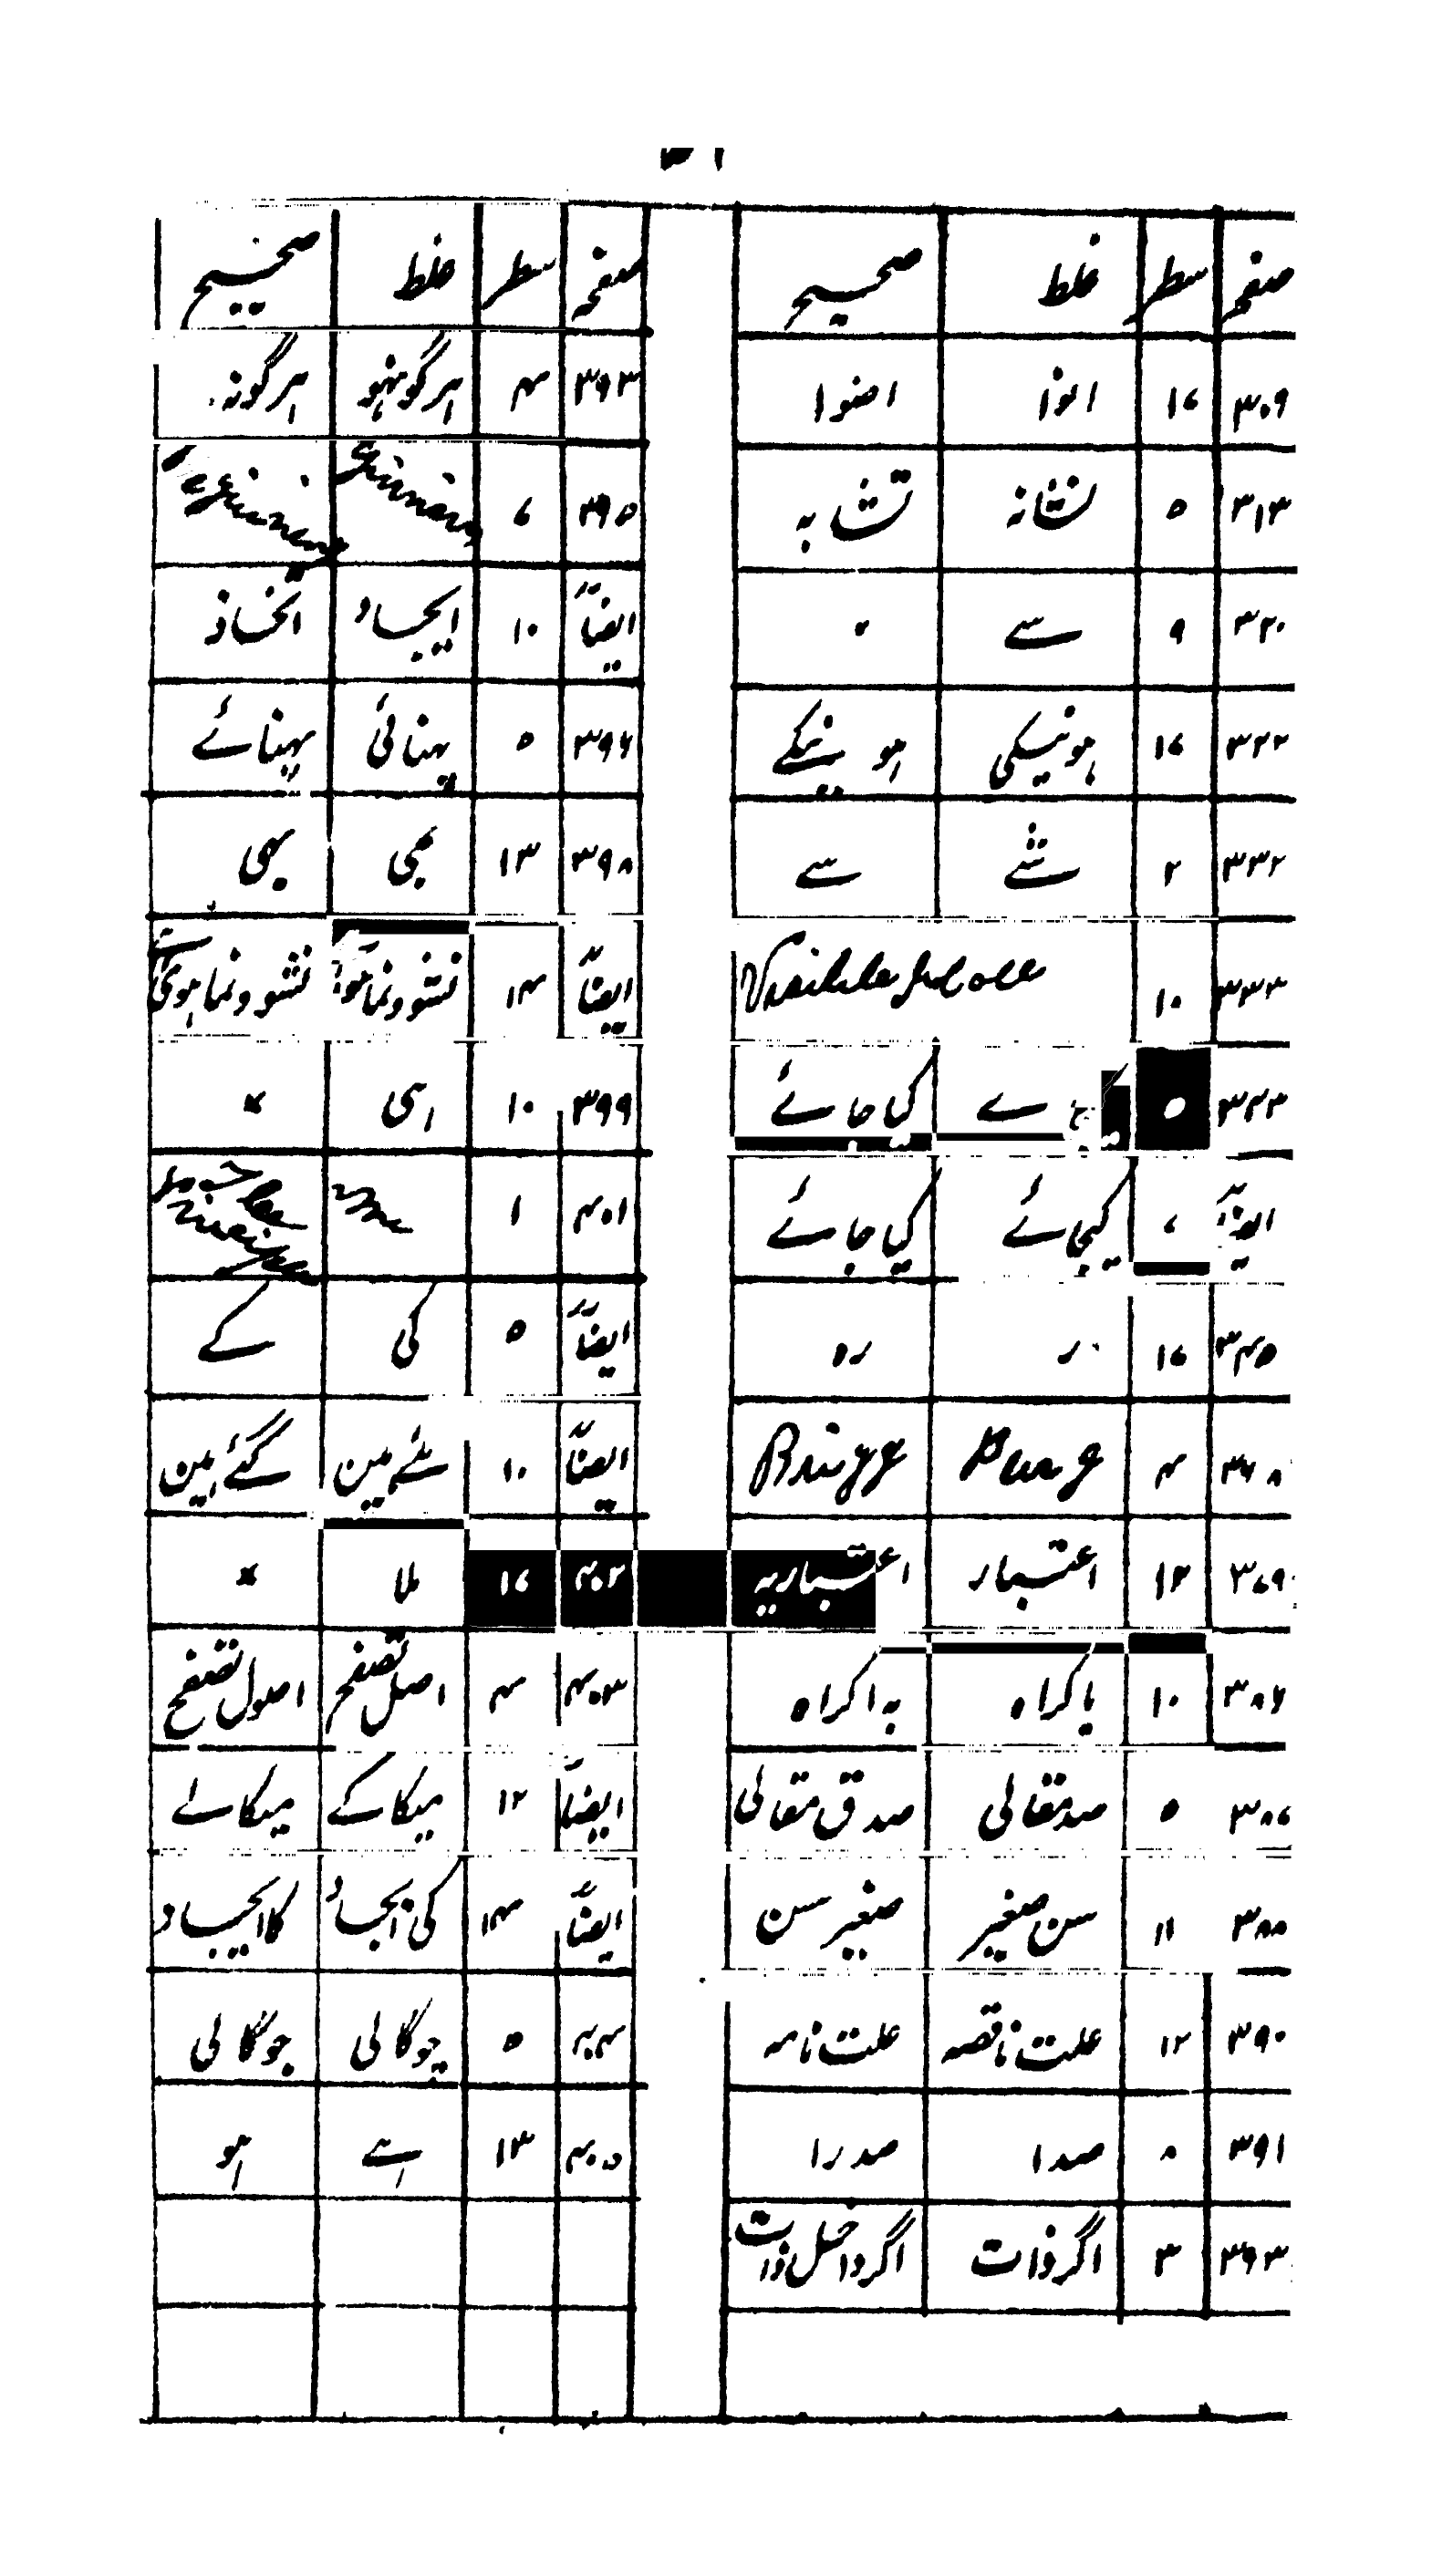 صفحہ سطر غلط صحیح
۳۰۹ ۱۷ انوا اضوا
۳۱۳ ۵ نشانہ تشابہ
۳۲۰ ۹ سے ۰
۳۲۲ ۱۷ ہونیکی ہو نیکے
۳۳۲ ۲ شے سے
۳۳۳ ۱۰
۳۴۳ ۵ کیا جائے
ایضاً ۷ کیجائے کیا جائے
۳۴۵ ۱۷ ر رہ
۳۶۸ ۴ Bung Brigg
۳۷۹ ۱۲ اعتبار اعتباریہ
۳۸۶ ۱۰ باکراہ بہ اکراہ
۳۸۷ ۵ صدمقالی صدق مقالی
۳۸۸ ۱۱ سن صغیر صغیر سن
۳۹۰ ۱۲ علت ناقصہ علت تامہ
۳۹۱ ۸ صدا صدرا
۳۹۳ ۳ اگر ذات اگر داخل ذات
صفحہ سطر غلط صحیح
۳۹۳ ۴ ہرگو ہرگونہ
۳۹۵ ۷
ایضاً ۱۰ ایجاد اتخاذ
۳۹۶ ۵ پہنائی پہنائے
۳۹۸ ۱۳ بھی
ایضاً ۱۴ نشوونما نشوونما ہوئی
۳۹۹ ۱۰ اسی ×
۴۰۱ ۱
ایضاً ۵ کی کے
ایضاً ۱۰ گئے ہین
۴۰۲ ۱۷ ملا ×
۴۰۳ ۴ اصل تصفح اصول تصفح
ایضاً ۱۲ میکاکے میکالے
ایضاً ۱۴ کی ایجاد کا ایجاد
۴۰۴ ۵ چوگالی جوگالی
۴۰۵ ۱۳ ہے ہو